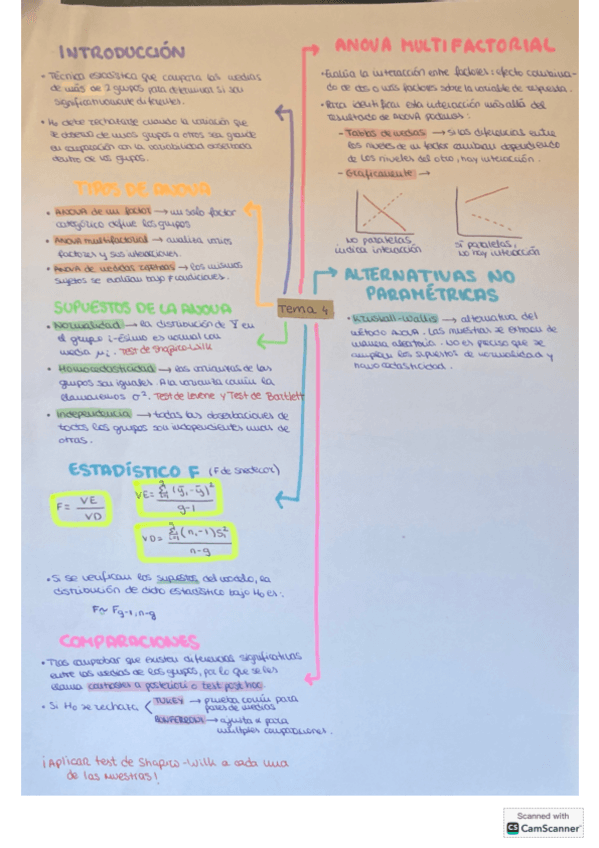 INTRODUCCIÓN
• Técnica estadística que compara las medias
de más de 2 grupos para determinar si son
significativamente diferentes.
• H₀ debe rechazarse cuando la variación que
se observa de unos grupos a otros sea grande
en comparación con la variabilidad observada
dentro de los grupos.
TIPOS DE ANOVA
• ANOVA de un factor → un solo factor
categórico define los grupos
• ANOVA multifactorial → analiza varios
factores y sus interacciones.
• ANOVA de medidas repetidas → los mismos
sujetos se evalúan bajo condiciones.
SUPUESTOS DE LA ANOVA
• Normalidad → la distribución de Y en
el grupo i-ésimo es normal con
media μi. Test de Shapiro-Wilk
• Homocedasticidad → las varianzas de los
grupos son iguales. A la varianza común la
llamaremos σ². Test de Levene y Test de Bartlett
• Independencia → todas las observaciones de
todos los grupos son independientes unas de
otras.
ESTADÍSTICO F (F de Snedecor)
F = VE / VD
VE = Σ (ȳi - ȳ)² / g-1
VD = Σ (ni - 1) Si² / n-g
• Si se verifican los supuestos del modelo, la
distribución de dicho estadístico bajo H₀ es:
F ~ F g-1, n-g
COMPARACIONES
• Tras comprobar que existen diferencias significativas
entre las medias de los grupos, por lo que se les
llama contrastes a posteriori o test post hoc.
• Si H₀ se rechaza < TUKEY → prueba común para
pares de medias
BONFERRONI → ajusta α para
múltiples comparaciones.
¡Aplicar test de Shapiro-Wilk a cada una
de las muestras!
Tema 4
ANOVA MULTIFACTORIAL
• Evalúa la interacción entre factores: efecto combina-
do de dos o más factores sobre la variable de respuesta.
• Para identificar esta interacción más allá del
resultado de ANOVA podemos:
- Tablas de medias → si las diferencias entre
los niveles de un factor cambian dependiendo
de los niveles del otro, hay interacción.
- Gráficamente →
NO paralelas,
indica interacción
Si paralelas,
no hay interacción
ALTERNATIVAS NO
PARAMÉTRICAS
• Kruskall-Wallis → alternativa del
método ANOVA. Las muestras se extraen de
manera aleatoria. No es preciso que se
cumplan los supuestos de normalidad y
homocedasticidad.
Scanned with
CS CamScanner